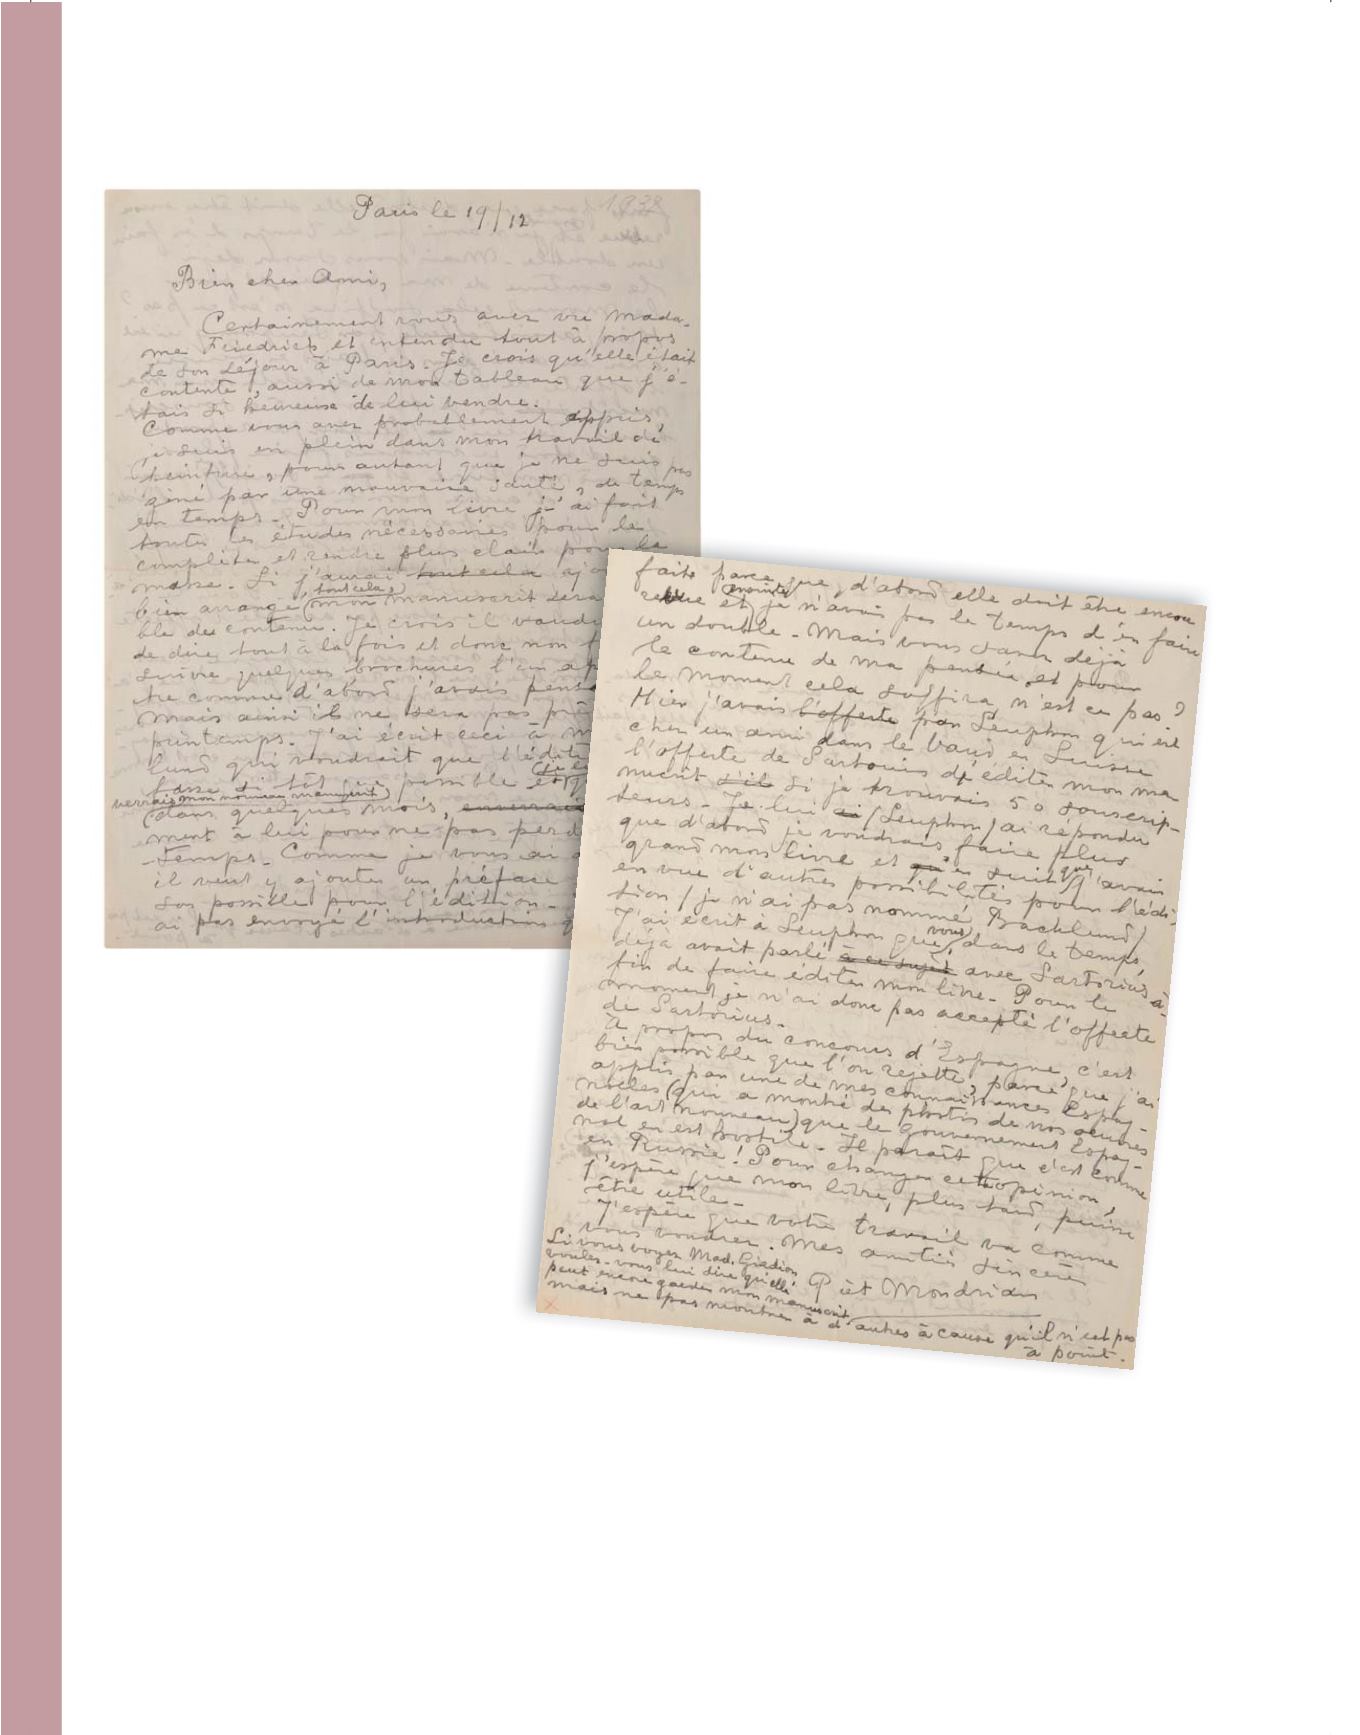 Paris le 19/12
Bien cher Ami,
Certainement vous avez vu Mada-
me Friedrich et entendu tout à propos
de son séjour à Paris. Je crois qu'elle était
contente, aussi de mon tableau que j'é-
tais si heureuse de lui vendre.
Comme vous avez probablement appris,
je suis en plein dans mon travail de
peinture, pour autant que je ne suis pas
gêné par une mauvaise santé, de temps
en temps. Pour mon livre j'ai fait
toutes les études nécessaires pour le
compléter et rendre plus clair pour la
masse. Si j'aurai tout cela ajo
bien arrangé (tout cela) mon manuscrit sera
ble de contenu. Je crois il vaudr
de dire tout à la fois et donc non f
suivre quelques brochures l'un ap
tre comme d'abord j'avais pens
Mais ainsi il ne sera pas prê
printemps. J'ai écrit ceci à M
lund qui voudrait que l'édit
fasse si tôt possible et q
verrais mon nouveau manuscrit
dans quelques mois,
ment à lui pour ne pas perd
temps. Comme je vous ai d
il veut y ajouter un préface
sos possible pour l'édition.
ai pas envoyé l'introduction q
faite parce que, d'abord elle doit être encore
revue et ensuite je n'avais pas le temps d'en faire
un double. Mais vous savez déjà
le contenu de ma pensée, et pour
le moment cela suffira, n'est ce pas?
Hier j'avais l'offerte par Seuphor qui est
chez un ami dans le Vaud en Suisse
l'offerte de Sartoris d'éditer mon ma
nuscrit s'il si je trouvais 50 souscrip-
teurs. Je lui ai (Seuphor) ai répondu
que d'abord je voudrais faire plus
grand mon livre et en suite que j'avais
en vue d'autres possibilités pour l'édi-
tion (je n'ai pas nommé Backlund)
J'ai écrit à Seuphor que vous, dans le temps,
déjà avait parlé à ce sujet avec Sartorius à-
fin de faire éditer mon livre. Pour le
moment je n'ai donc pas accepté l'offerte
de Sartorius.
à propos du concours d'Espagne, c'est
bien possible que l'on rejette, parce que j'ai
appris par une de mes connaissances Espag-
noles (qui a montré des photos de nos oeuvres
de l'art nouveau) que le gouvernement Espag-
nol en est hostile. Il paraît que c'est comme
en Russie! Pour changer cette opinion,
j'espère que mon livre, plus tard, puisse
être utile.
J'espère que votre travail va comme
vous voudrez. Mes amitiés sincères
Piet Mondrian
Si vous voyez Mad. Giedion
voulez-vous lui dire qu'elle
peut encore garder mon manuscrit
mais ne pas montrer à d'autres à cause qu'il n'est pas
à point.